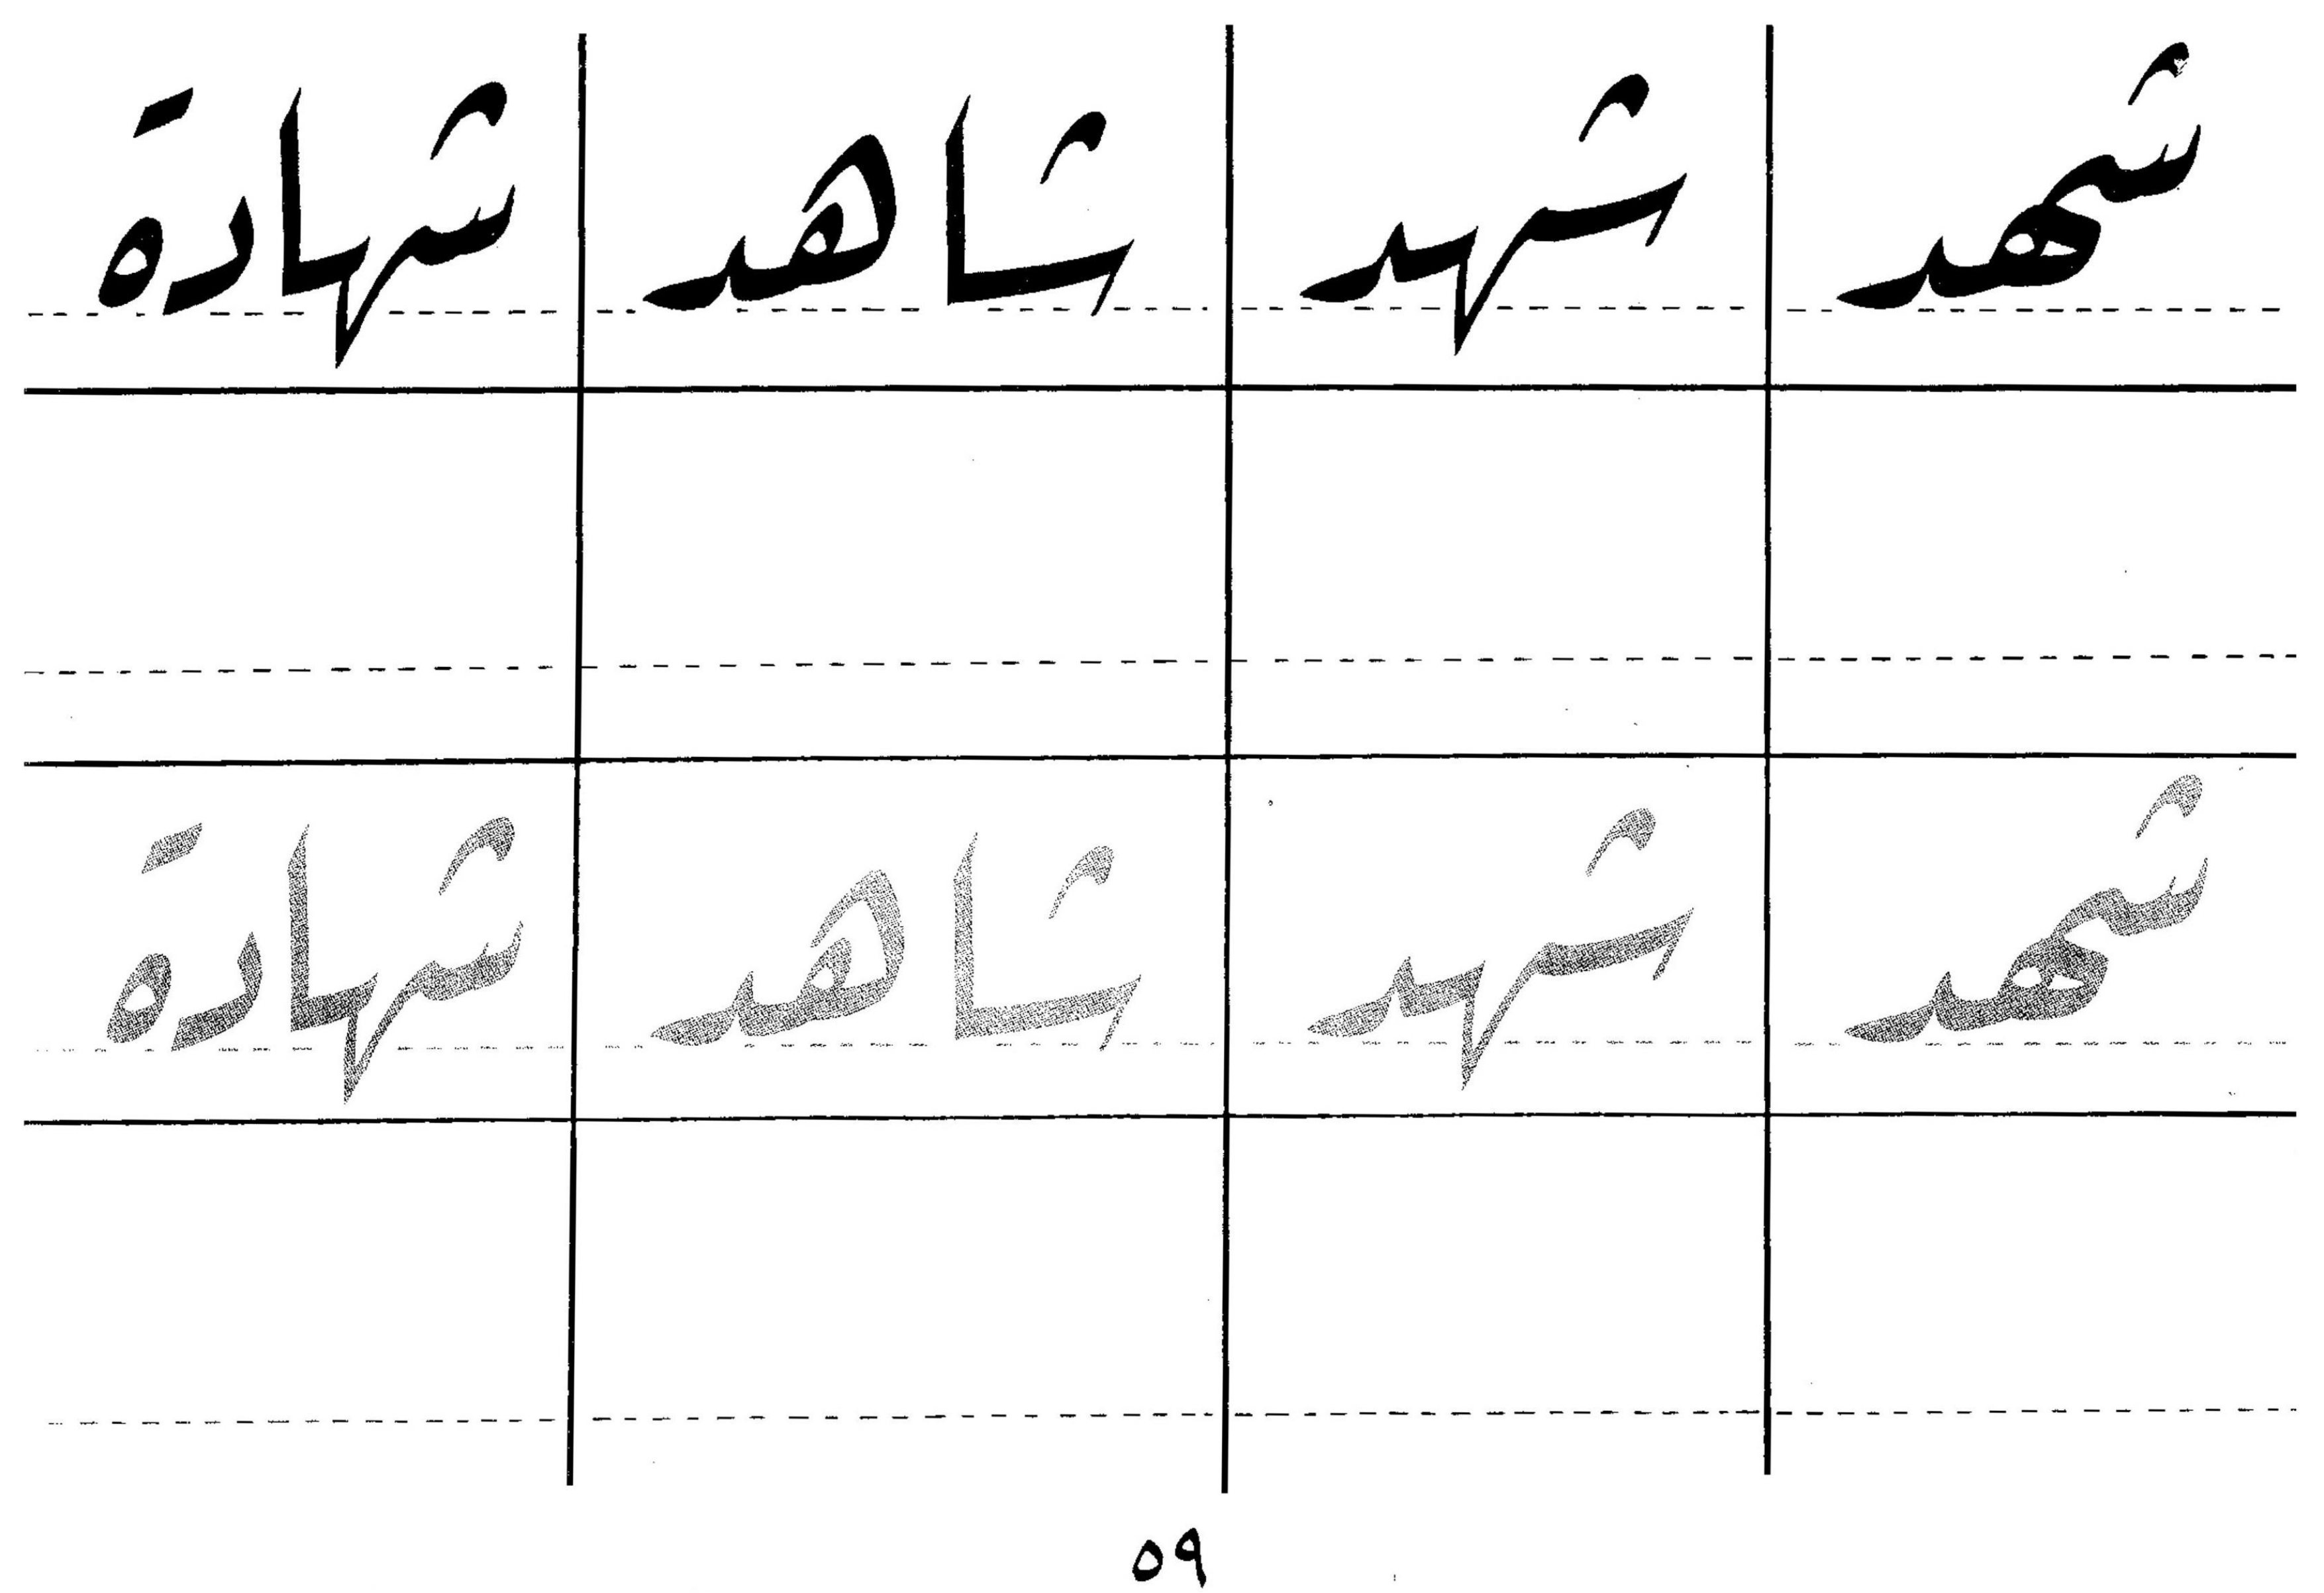 شهد شهد شاهد شهادة
شهد شهد شاهد شهادة
٥٩